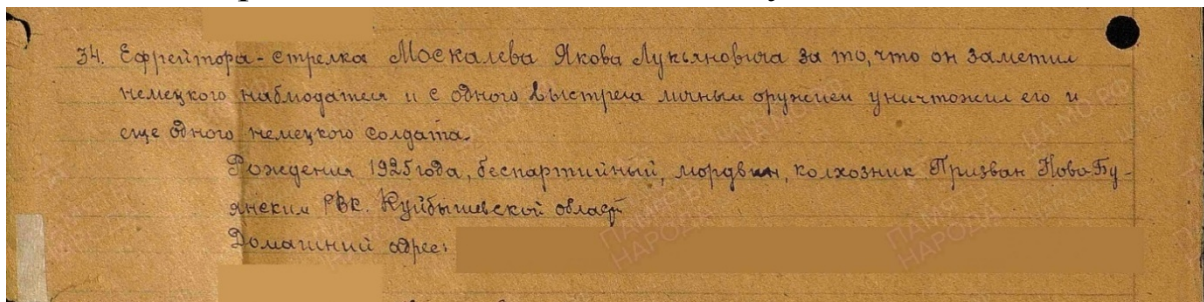 34. Ефрейтора-стрелка Москалева Якова Лукьяновича за то, что он заметил
немецкого наблюдателя и с одного выстрела личным оружием уничтожил его и
еще одного немецкого солдата.
Рождения 1925 года, беспартийный, мордвин, колхозник Призван Ново-Бу-
янским РВК. Куйбышевской област
Домашний адрес: